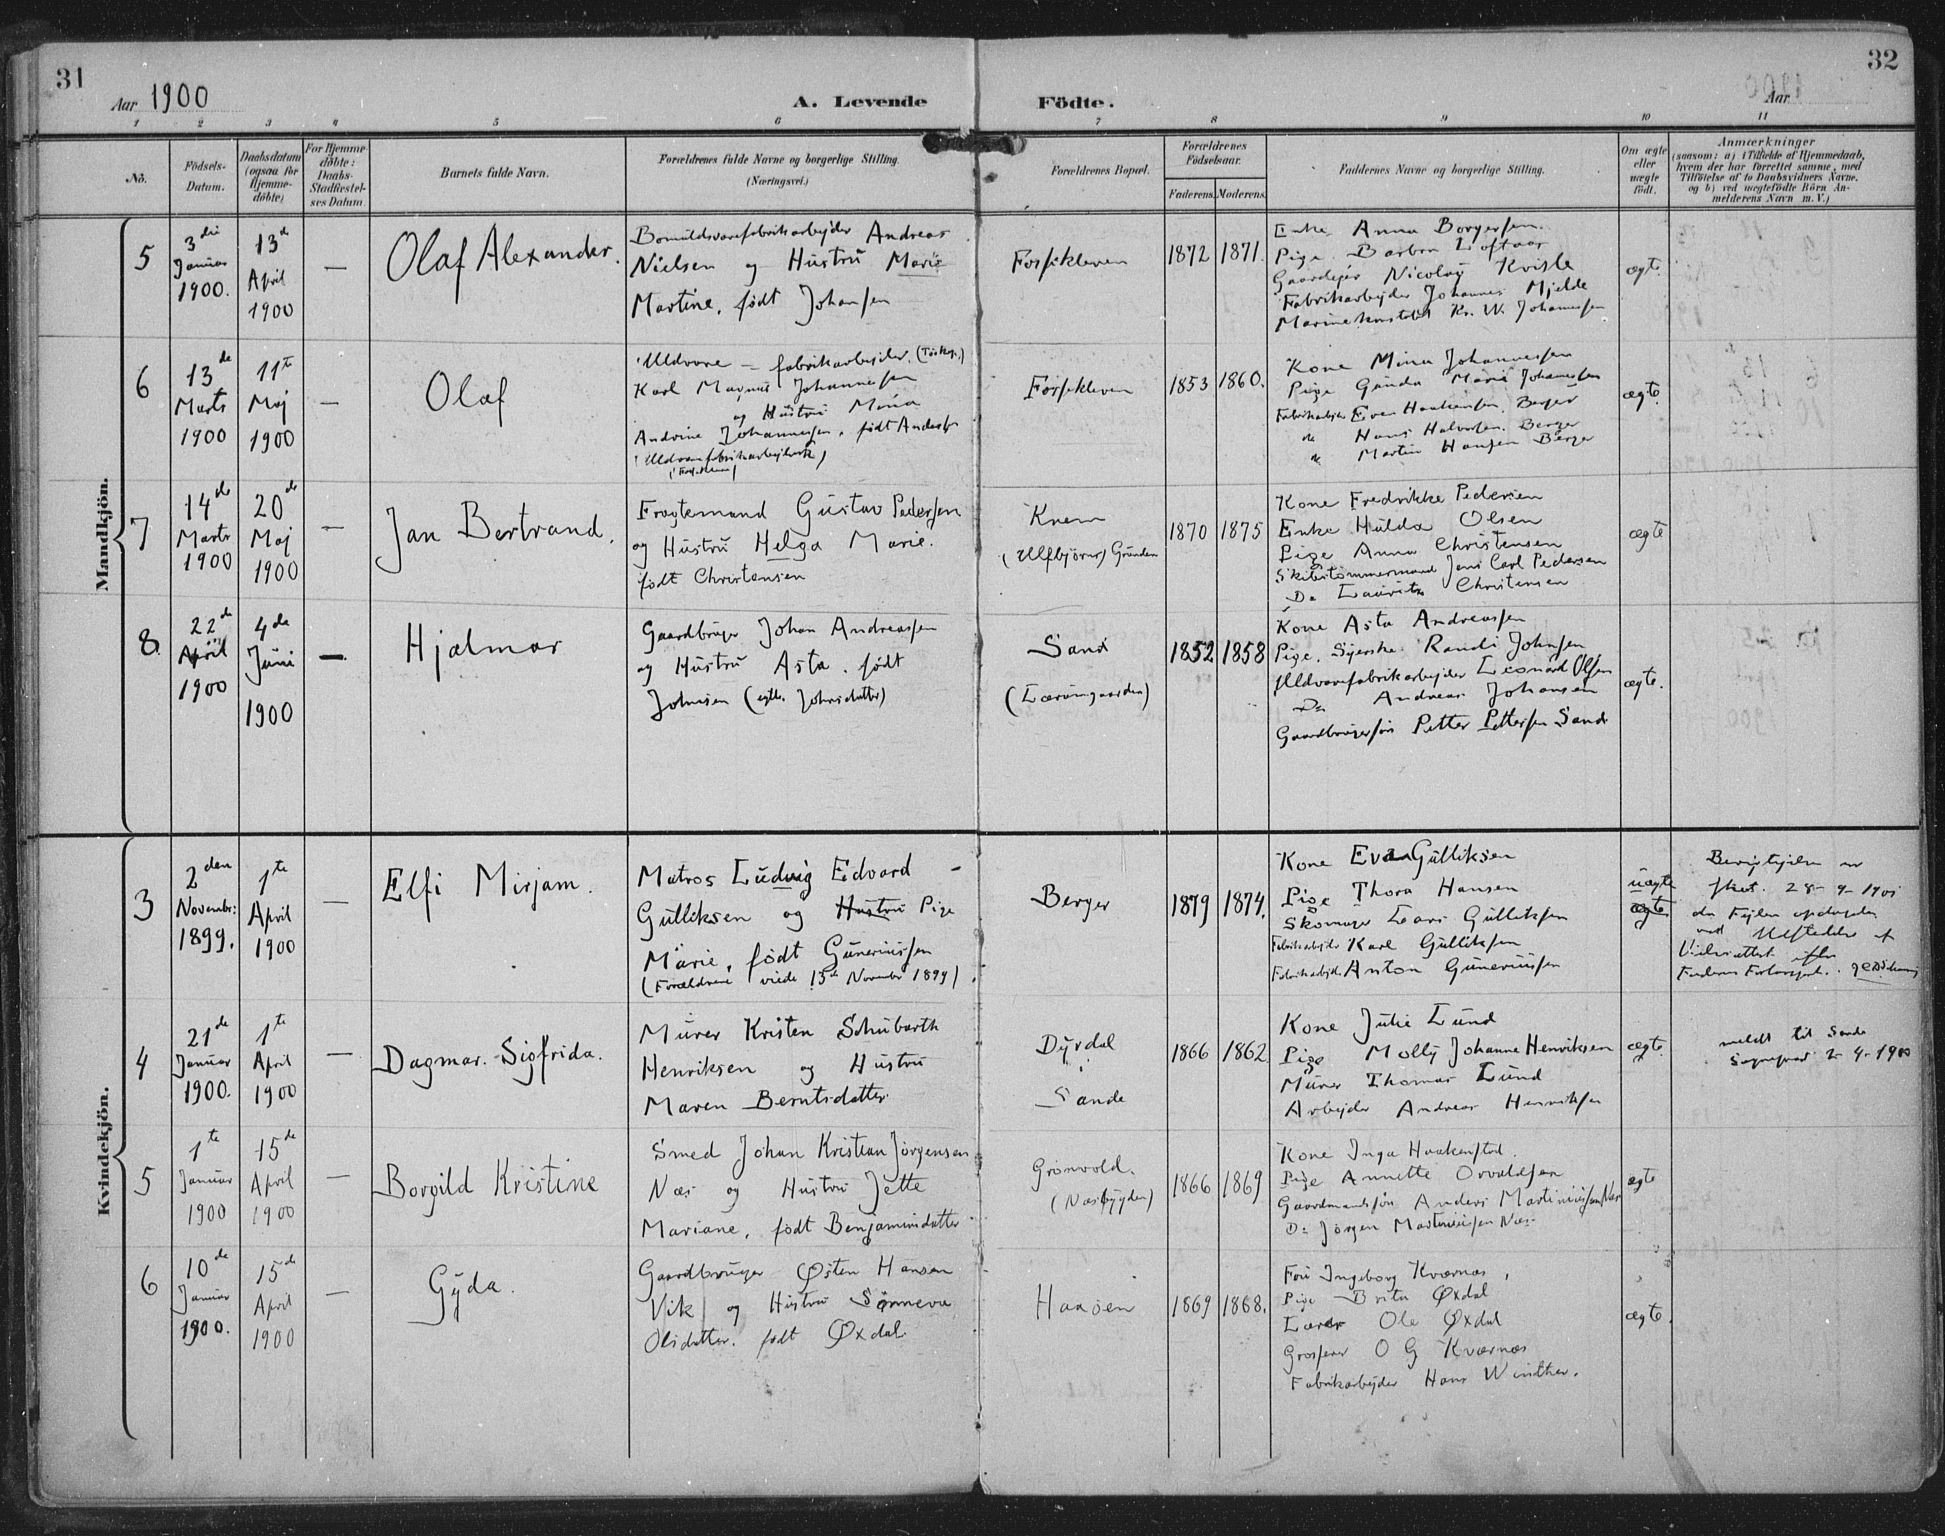 31
32
Aar 1900
A. Levende Födte.
Aar
1 2 3 4 5 6 7 8 9 10 11
No.
Födsels-Datum.
Daabsdatum (ogsaa for Hjemme-döbte)
For Hjemme-döbte: Daabs-Stadfæstel-ses Datum
Barnets fulde Navn.
Forældrenes fulde Navne og borgerlige Stilling. (Næringsvei.)
Forældrenes Bopæl.
Forældrenes Födselsaar.
Faderens. Moderens.
Faddernes Navne og borgerlige Stilling.
Om ægte eller uægte födt.
Anmærkninger
(saasom: a) i Tilfælde af Hjemmedaab,
hvem der har forrettet samme, med
Tilföielse af to Daabsvidners Navne.
og b) ved uægtefödte Börn An-
melderens Navn m. V.)
Mandkjön.
5
3die Januar 1900.
13de April 1900
—
Olaf Alexander.
Bomuldsvarefabrikarbejder Andreas
Nielsen og Hustru Marie
Martine, født Johansen
Fossekleven
1872 1871.
Enke Anna Borgersen.
Pige Barbra Loftaas
Gaardejer Nicolay Kvisle
Fabrikarbejder Johannes Mjelde
Kr. W. Johannesen
ægte.
6
13de Marts 1900
11te Maj 1900
—
Olaf
Uldvare – fabrikarbejder.
Karl Magnus Johannesen
og Hustru Mina
Andrine Johannesen, født
Fossekleven
1853 1860.
Kone Mina Johannessen
Pige Gunda Marie Johannesen
Fabrikarbejder Even Haakensen. Berger
Hans Halvorsen. Berger
Martin Hansen Berger
ægte.
7
14de Marts 1900
20de Maj 1900
—
Jan Bertrand.
Fragtemand Gustav Pedersen
og Hustru Helga Marie.
født Christensen
Knem
(Ulfbjørns) Grunden
1870 1875
Kone Fredrikke Pedersen
Enke Hulda Olsen
Pige Anna Christensen
Skibstømmermand Jens Carl Pedersen
Do Lauritz Christensen
ægte
8.
22de April 1900
4de Juni 1900
—
Hjalmar
Gaardbruger Johan Andreassen
og Hustru Asta. født
Johnsen (egtl. Johnsdatter)
Sand
1852 1858
Kone Asta Andreassen
Pige. Syerske. Randi Johnsen
Uldvarefabrikarbejder Leonard Olsen
Do Andreas Johansen
Gaardbrugersøn Petter Pettersen Sand
ægte.
Kvindekjön.
3
2den Novembr: 1899.
1te April 1900
—
Elfi Mirjam.
Matros Ludvig Edvard
Gulliksen og Hustru Pige
Marie, født Guneriussen
(Forældrene viede 15de November 1899).
Berger
1879 1874.
Kone Eva Gulliksen
Pige Thora Hansen
Skomager Lars Gulliksen
Fabrikarbejder Karl Gulliksen
Fabrikarbejder Anton Guneriussen
uægte
ægte
da Fejlen opdagedes
4
21de Januar 1900.
1te April 1900
—
Dagmar. Sigfrida.
Murer Kristen Schubarth
Henriksen og Hustru
Maren Berntsdatter
Dyrdal
Sande
1866 1862
Kone Julie Lund
Pige Molly Johanne Henriksen
Murer Thomas Lund
Arbejder Andreas Henriksen
ægte
meldt til Sande
Sogneprest 2-4-1900
5
1te Januar 1900
15de April 1900
—
Borgild Kristine
Smed Johan Kristian Jörgensen
Næs og Hustru Jette
Mariane, født Benjaminsdatter
Grönvold.
(Næsbygden)
1866 1869
Kone Inga Haakenstad.
Pige Annette Osvaldsen
Gaardmandssøn Anders Martiniussen Næs
Do Jörgen Martiniussen Næs
ægte
6
10de Januar 1900.
15de April 1900
—
Gyda.
Gaardbruger Østen Hansen
Vik og Hustru Sønneva
Olsdatter. født Øxdal.
Haasen
1869 1868.
Fru Ingeborg Kværnæs,
Pige Brita Øxdal
Lærer Ole Øxdal
Grosserer O G Kværnæs
Fabrikarbejder Hans Winther.
ægte.